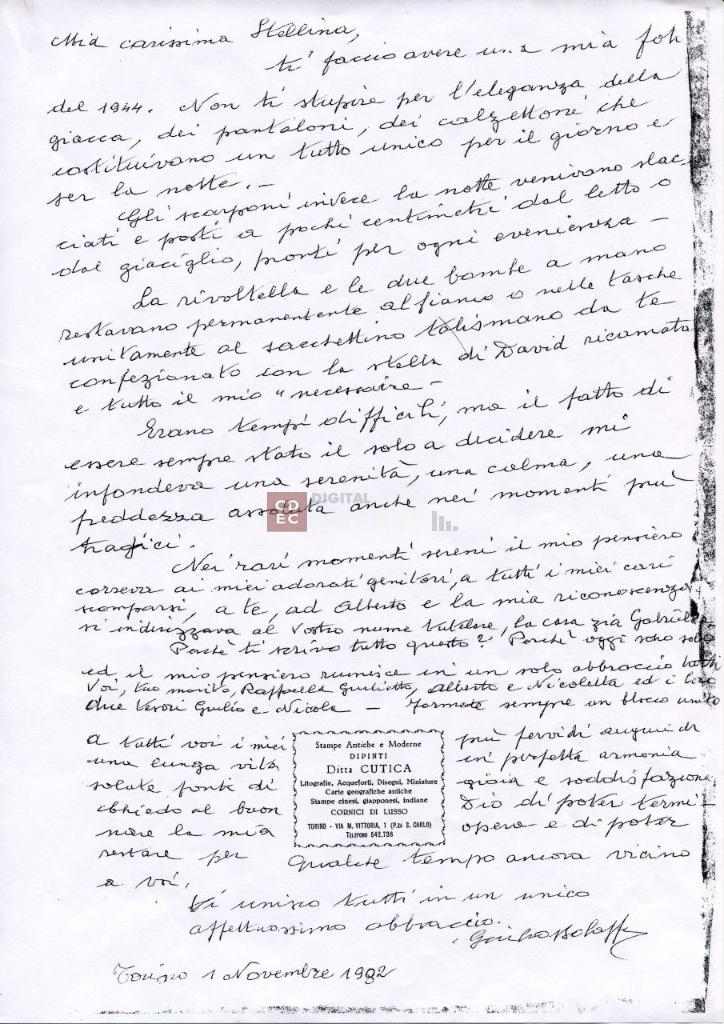 Mia carissima Stellina,
ti faccio avere una mia foto
del 1944. Non ti stupire per l'eleganza della
giacca, dei pantaloni, dei calzettoni che
costituivano un tutto unico per il giorno e
per la notte. -
Gli scarponi invece la notte venivano slac-
ciati e posti a pochi centimetri dal letto o
dal giaciglio, pronti per ogni evenienza -
La rivoltella e le due bombe a mano
restavano permanentemente al fianco o nelle tasche
unitamente al sacchettino talismano da te
confezionato con la stella di David ricamata
e tutto il mio "necessaire -
Erano tempi difficili, ma il fatto di
essere sempre stato il solo a decidere mi
infondeva una serenità, una calma, una
freddezza assoluta anche nei momenti più
tragici.
DIGITAL
CDEC
Nei rari momenti sereni il mio pensiero
correva ai miei adorati genitori, a tutti i miei cari
scomparsi, a te, ad Alberto e la mia riconoscenza
si indirizzava al Vostro nume tutelare, la cara zia Gabriella
Perché ti scrivo tutto questo? Perché oggi sono solo
ed il mio pensiero riunisce in un solo abbraccio tutti
Voi, tuo marito, Raffaella Giulietta, Alberto e Nicoletta ed i loro
due tesori Giulio e Nicola - Formate sempre un blocco unito
a tutti voi i miei più fervidi auguri di
una lunga vita in perfetta armonia
salute fonti di gioia e soddisfazione
chiedo al buon Dio di poter termi-
nare la mia opera e di poter
restare per qualche tempo ancora vicino
a voi.
Stampe Antiche e Moderne
DIPINTI
Ditta CUTICA
Litografie, Acqueforti, Disegni, Miniature
Carte geografiche antiche
Stampe cinesi, giapponesi, indiane
CORNICI DI LUSSO
TORINO - VIA M. VITTORIA, 1 (P.za S. CARLO)
TELEFONO 542.736
Vi unisco tutti in un unico
affettuosissimo abbraccio.
Giulio Bolaffi
Torino 1 Novembre 1982